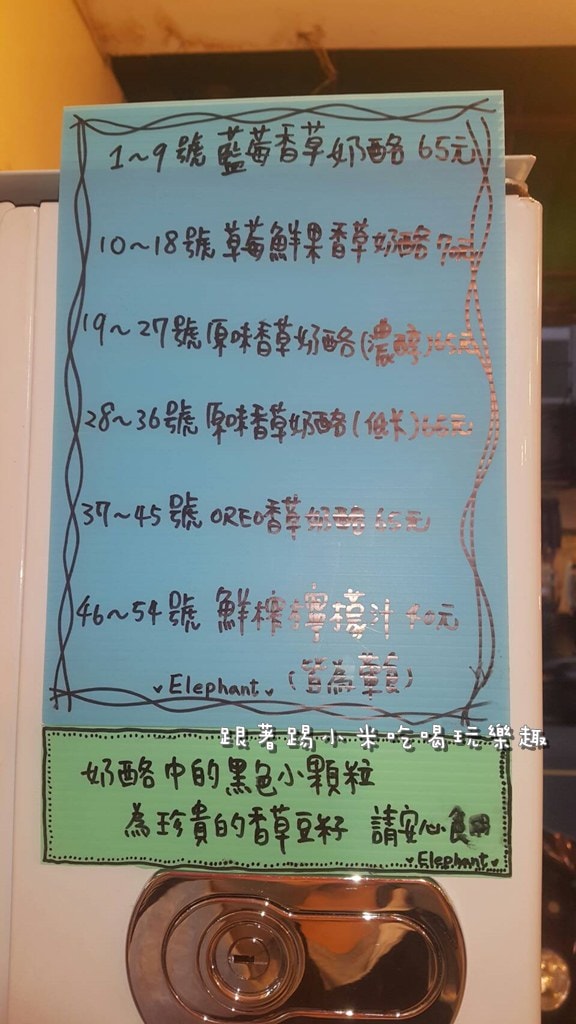 1~9號 藍莓香草奶酪 65元
10~18號 草莓鮮果香草奶酪 70元
19~27號 原味香草奶酪(濃醇)65元
28~36號 原味香草奶酪(低卡)65元
37~45號 OREO香草奶酪 65元
46~54號 鮮榨檸檬汁 40元
Elephant (皆為葷食)
跟著踢小米吃喝玩樂趣
奶酪中的黑色小顆粒
為珍貴的香草豆籽 請安心食用
Elephant